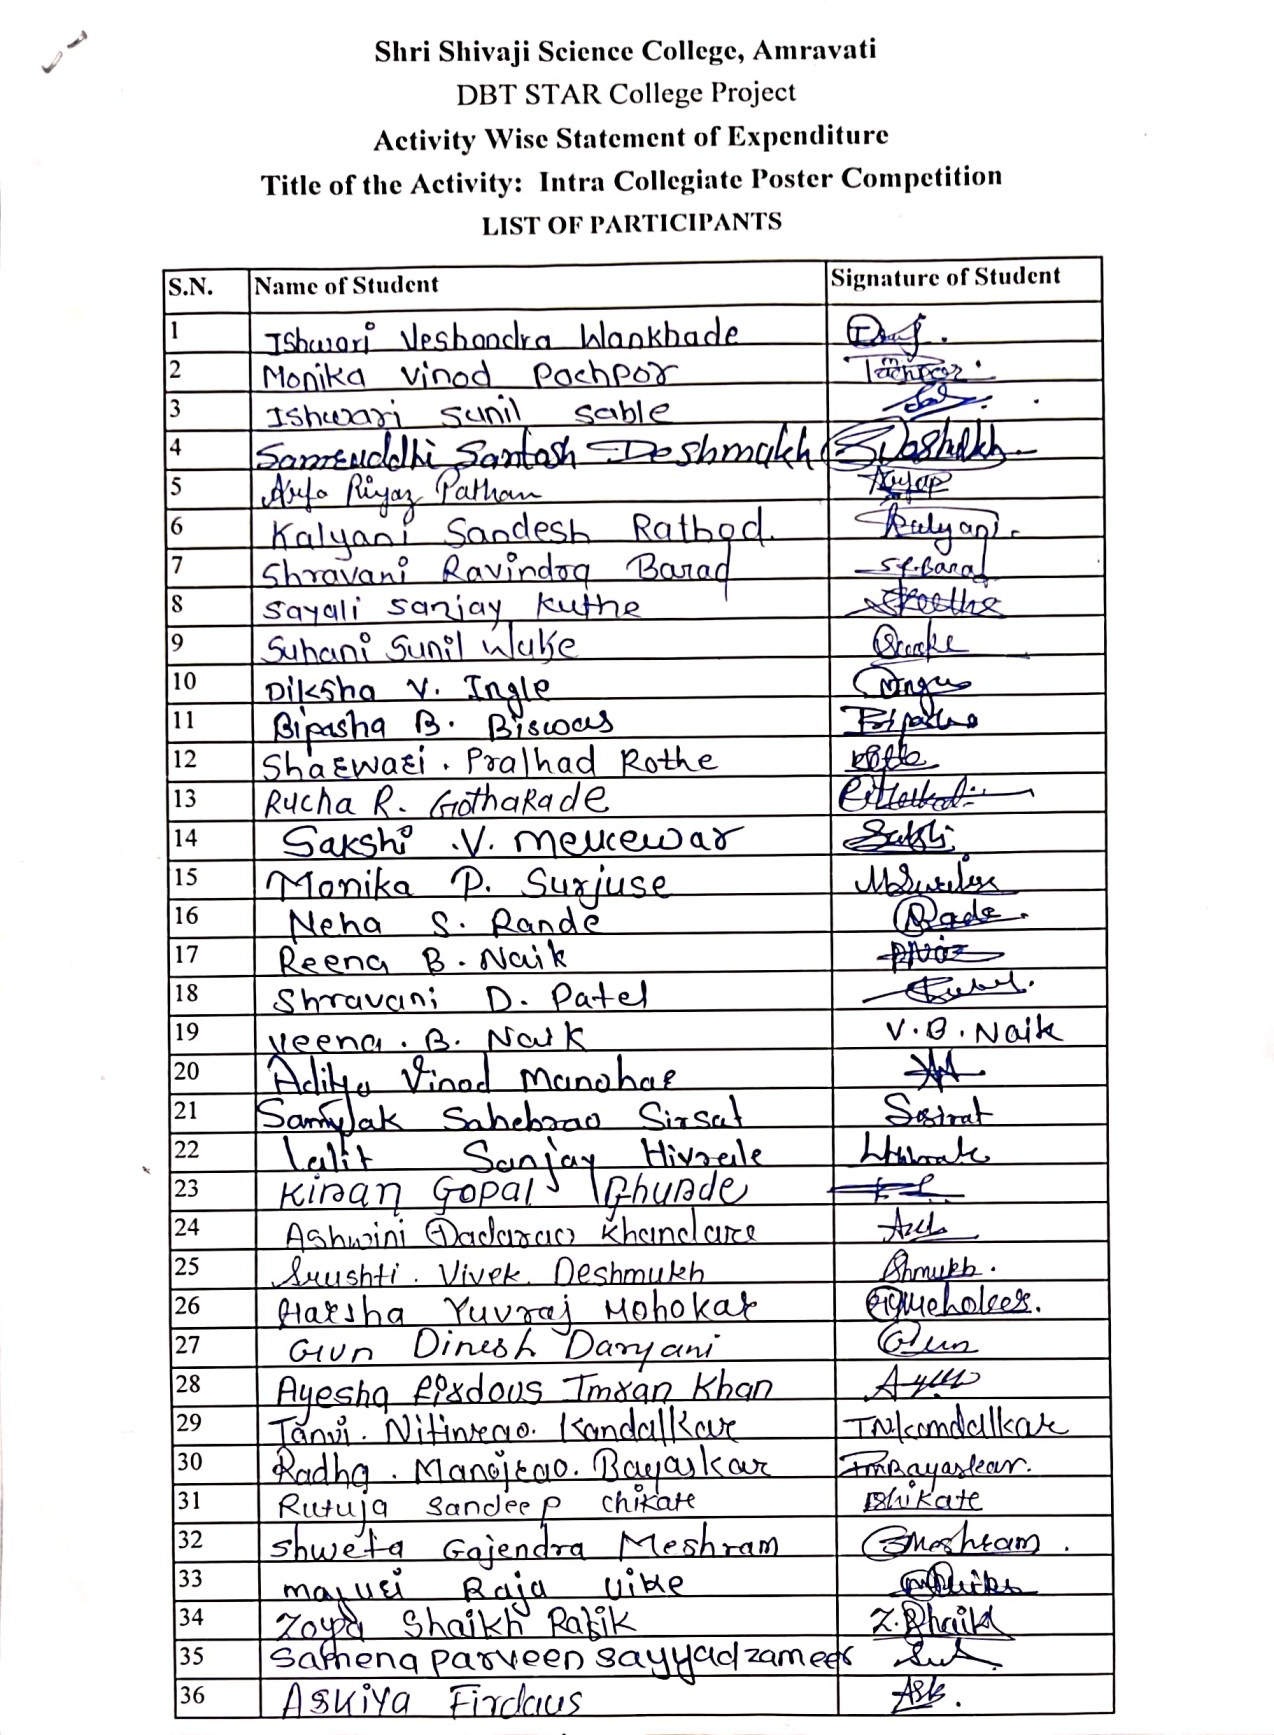 Shri Shivaji Science College, Amravati
DBT STAR College Project
Activity Wise Statement of Expenditure
Title of the Activity: Intra Collegiate Poster Competition
LIST OF PARTICIPANTS
S.N. Name of Student Signature of Student
1 Ishwari Veshondra Wankhade
2 Monika Vinod Pachpor
3 Ishwari Sunil Sable
4 Samruddhi Santosh Deshmukh
5 Arfa Riyaz Pathan
6 Kalyani Sandesh Rathod. Kalyani.
7 Shravani Ravindra Barad
8 Sayali Sanjay Kuthe
9 Suhani Sunil
10 Diksha V. Ingle
11 Bipasha B. Biswas
12 Sharwari. Pralhad Rothe
13 Rucha R. Gothakade
14 Sakshi .V. Meucewar
15 Monika P. Surjuse
16 Neha S. Rande
17 Reena B. Naik
18 Shravani D. Patel
19 Veena. B. Naik V.B. Naik
20 Aditya Vinod Manohar
21 Samyak Sahebrao Sirsat
22 Lalit Sanjay Hivrale
23 Kiran Gopal
24 Ashwini Dadarao Khandare
25 Srushti. Vivek. Deshmukh
26 Harsha Yuvraj Mohokar
27 Gun Dinesh Daryani Gun
28 Ayesha Firdous Imran Khan
29 Tanvi. Nitinrao. Kandalkar TNKandalkar
30 Radha. Manojrao. Bayaskar RMBayaskar.
31 Rutuja Sandeep Chikate
32 Shweta Gajendra Meshram GMeshram.
33 Raja Uike
34 Zoya Shaikh Rafik Z. Shaikh
35 Samena Parveen Sayyad Zameer
36 Askiya Firdaus